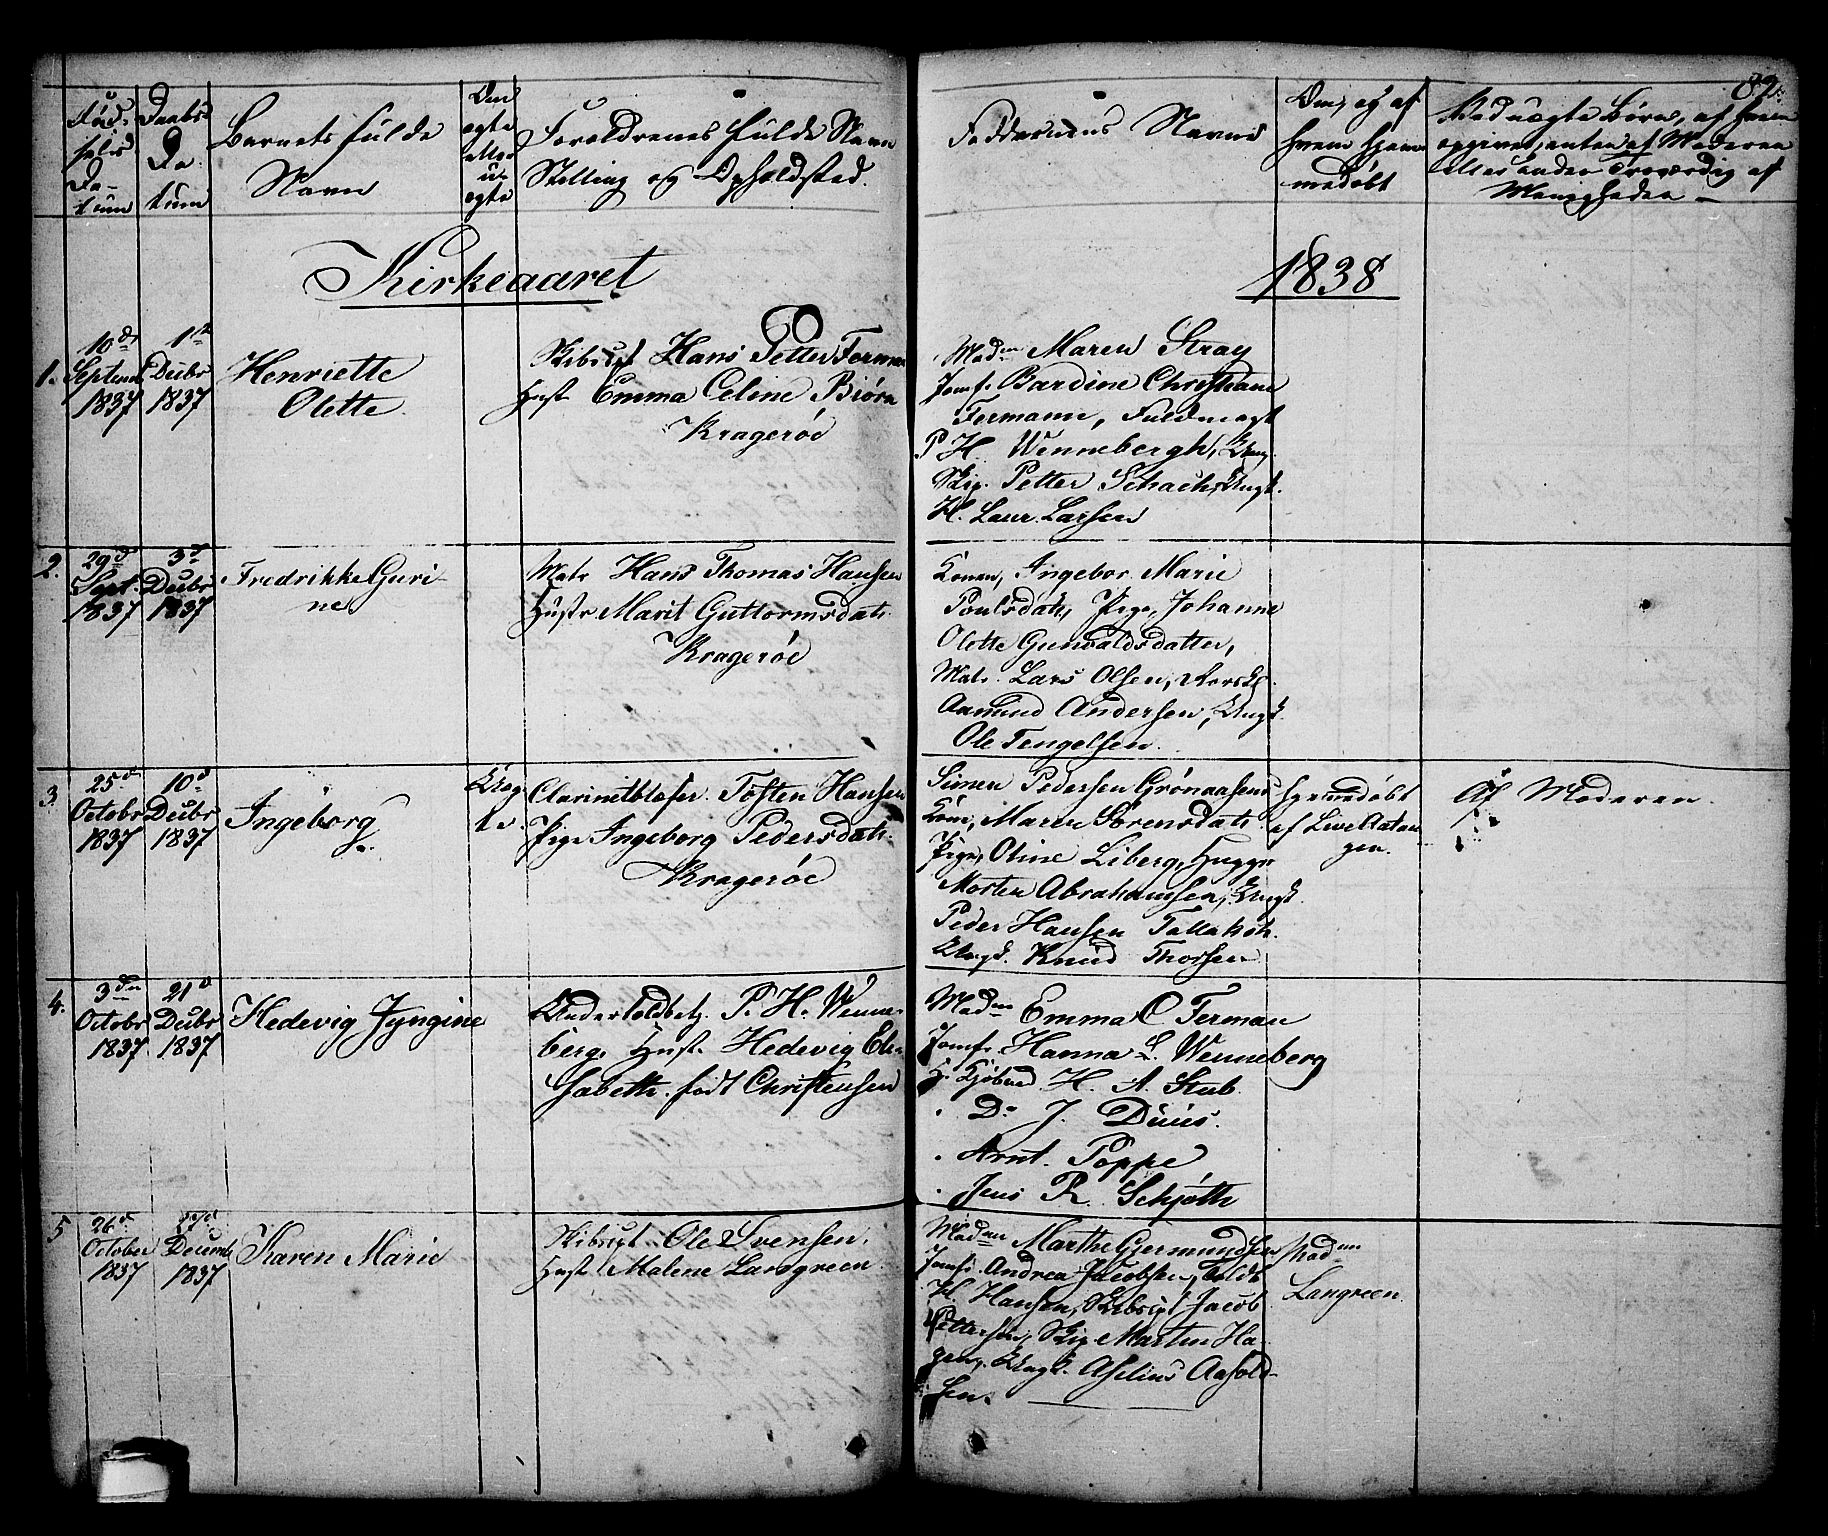 82.
Fød-
sels
Da-
tum
Daabs
Da
tum
Barnets fulde
Navn
Om
ægte
eller
u-
ægte
Forældrenes fulde Navn
Stilling og Opholdsted.
Faddernes Navne
Om, og af
hvem hjem-
medøbt
Ved uægte Børn, af hvem
opgivet, enten af Moderen
eller anden Troværdig af
Menigheden
Kirkeaaret
1838
1.
10de
Septemb
1837
1ste
Decbr
1837
Henriette
Olette
Skibscpt Hans Petter Ferman
Hust. Emma Celine Biørn
Kragerøe
Madmn Maren Stray
Jomf. Bardine Christiane
Fermann, Fuldmægt
P H. Wennebergh, Ung.
Skip. Petter Schach, Ungk.
H. Laur. Larsen
2.
29d
Sept.
1837
3d
Decbr
1837
Fredrikke Guri-
ne
Matr Hans Thomas Hansen
Hustr Marit Guttormsdatr
Kragerøe
Konen, Ingebor Marie
Poulsdatr, Pige, Johanne
Olette Gunvaldsdatter,
Matr. Lars Olsen,
Aamund Andersen, Ungk.
Ole Tengelsen.
3.
25d
Octobr
1837
10d
Decbr
1837
Ingeborg
Uæg
te.
Clarinetblæser. Tosten Hansen
Pige Ingeborg Pedersdatr.
Kragerøe
Simen Pedersen Grønaasens
Kone, Maren Sørensdatr
Pige, Oline Liberg,
Morten Abrahamsen, Ungk.
Peder Hansen Tallaksh.
Ungk. Knud Thorsen
Hjemmedøbt
af
gen.
Af Moderen.
4.
3den
Octobr
1837
21d
Decbr
1837
Hedevig Jyngine
Undertoldbetj. P. H. Wenne-
berg, Hust. Hedevig Eli-
sabeth. født Christensen
Madmn Emma C Ferman
Jomfr. Hanna L. Wenneberg
H. Kjøbmd H. A. Stub
Do J. Duus.
Arnt. Poppe
Jens R. Schjøth
5
26d.
October
1837
27d
Decemb
1837
Karen Marie
Skibscpt. Ole Svensen,
Hust Malene Langreen
Madmn Marthe Gjermundsen
Jomfr. Andrea Jacobsen, Toldb
H. Hansen, Skibscpt Jacob
Pettersen, Skip. Martin Ha-
gens. Ungk. Aselius Aasold-
sen.
Madmn
Langreen.